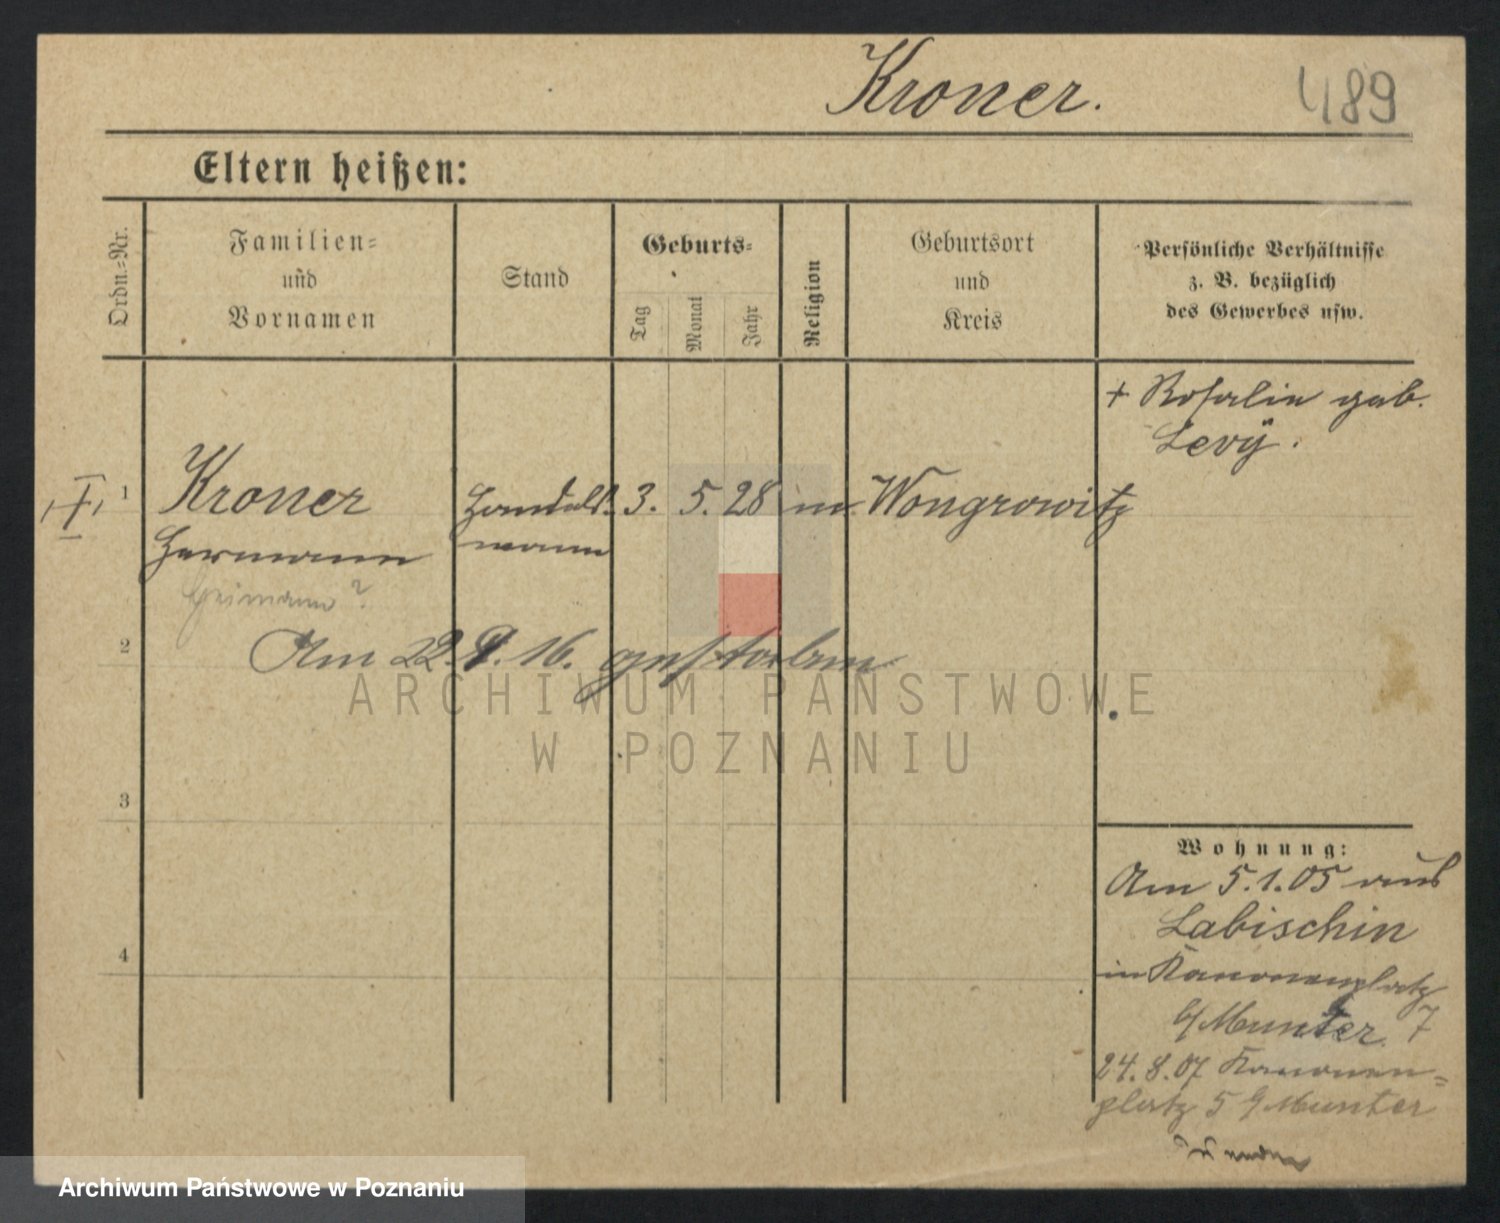 Kroner.
489
Eltern heißen:
Ordn.=Nr.
Familien=
und
Vornamen
Stand
Geburts=
Tag
Monat
Jahr
Religion
Geburtsort
und
Kreis
Persönliche Verhältnisse
z. B. bezüglich
des Gewerbes usw.
+ Rosalie geb.
Levÿ.
1
Kroner
Handels
3. 5. 28
m.
Wongrowitz
Hermann
mann
Heimann?
2
Am 22. 9. 16. gestorben
ARCHIWUM PAŃSTWOWE
W POZNANIU
3
4
Wohnung:
Am 5.1.05 aus
Labischin
in Kanonenplatz
b/Munter. 7
24.8.07 Kanonen=
platz 5 b/Munter
Archiwum Państwowe w Poznaniu